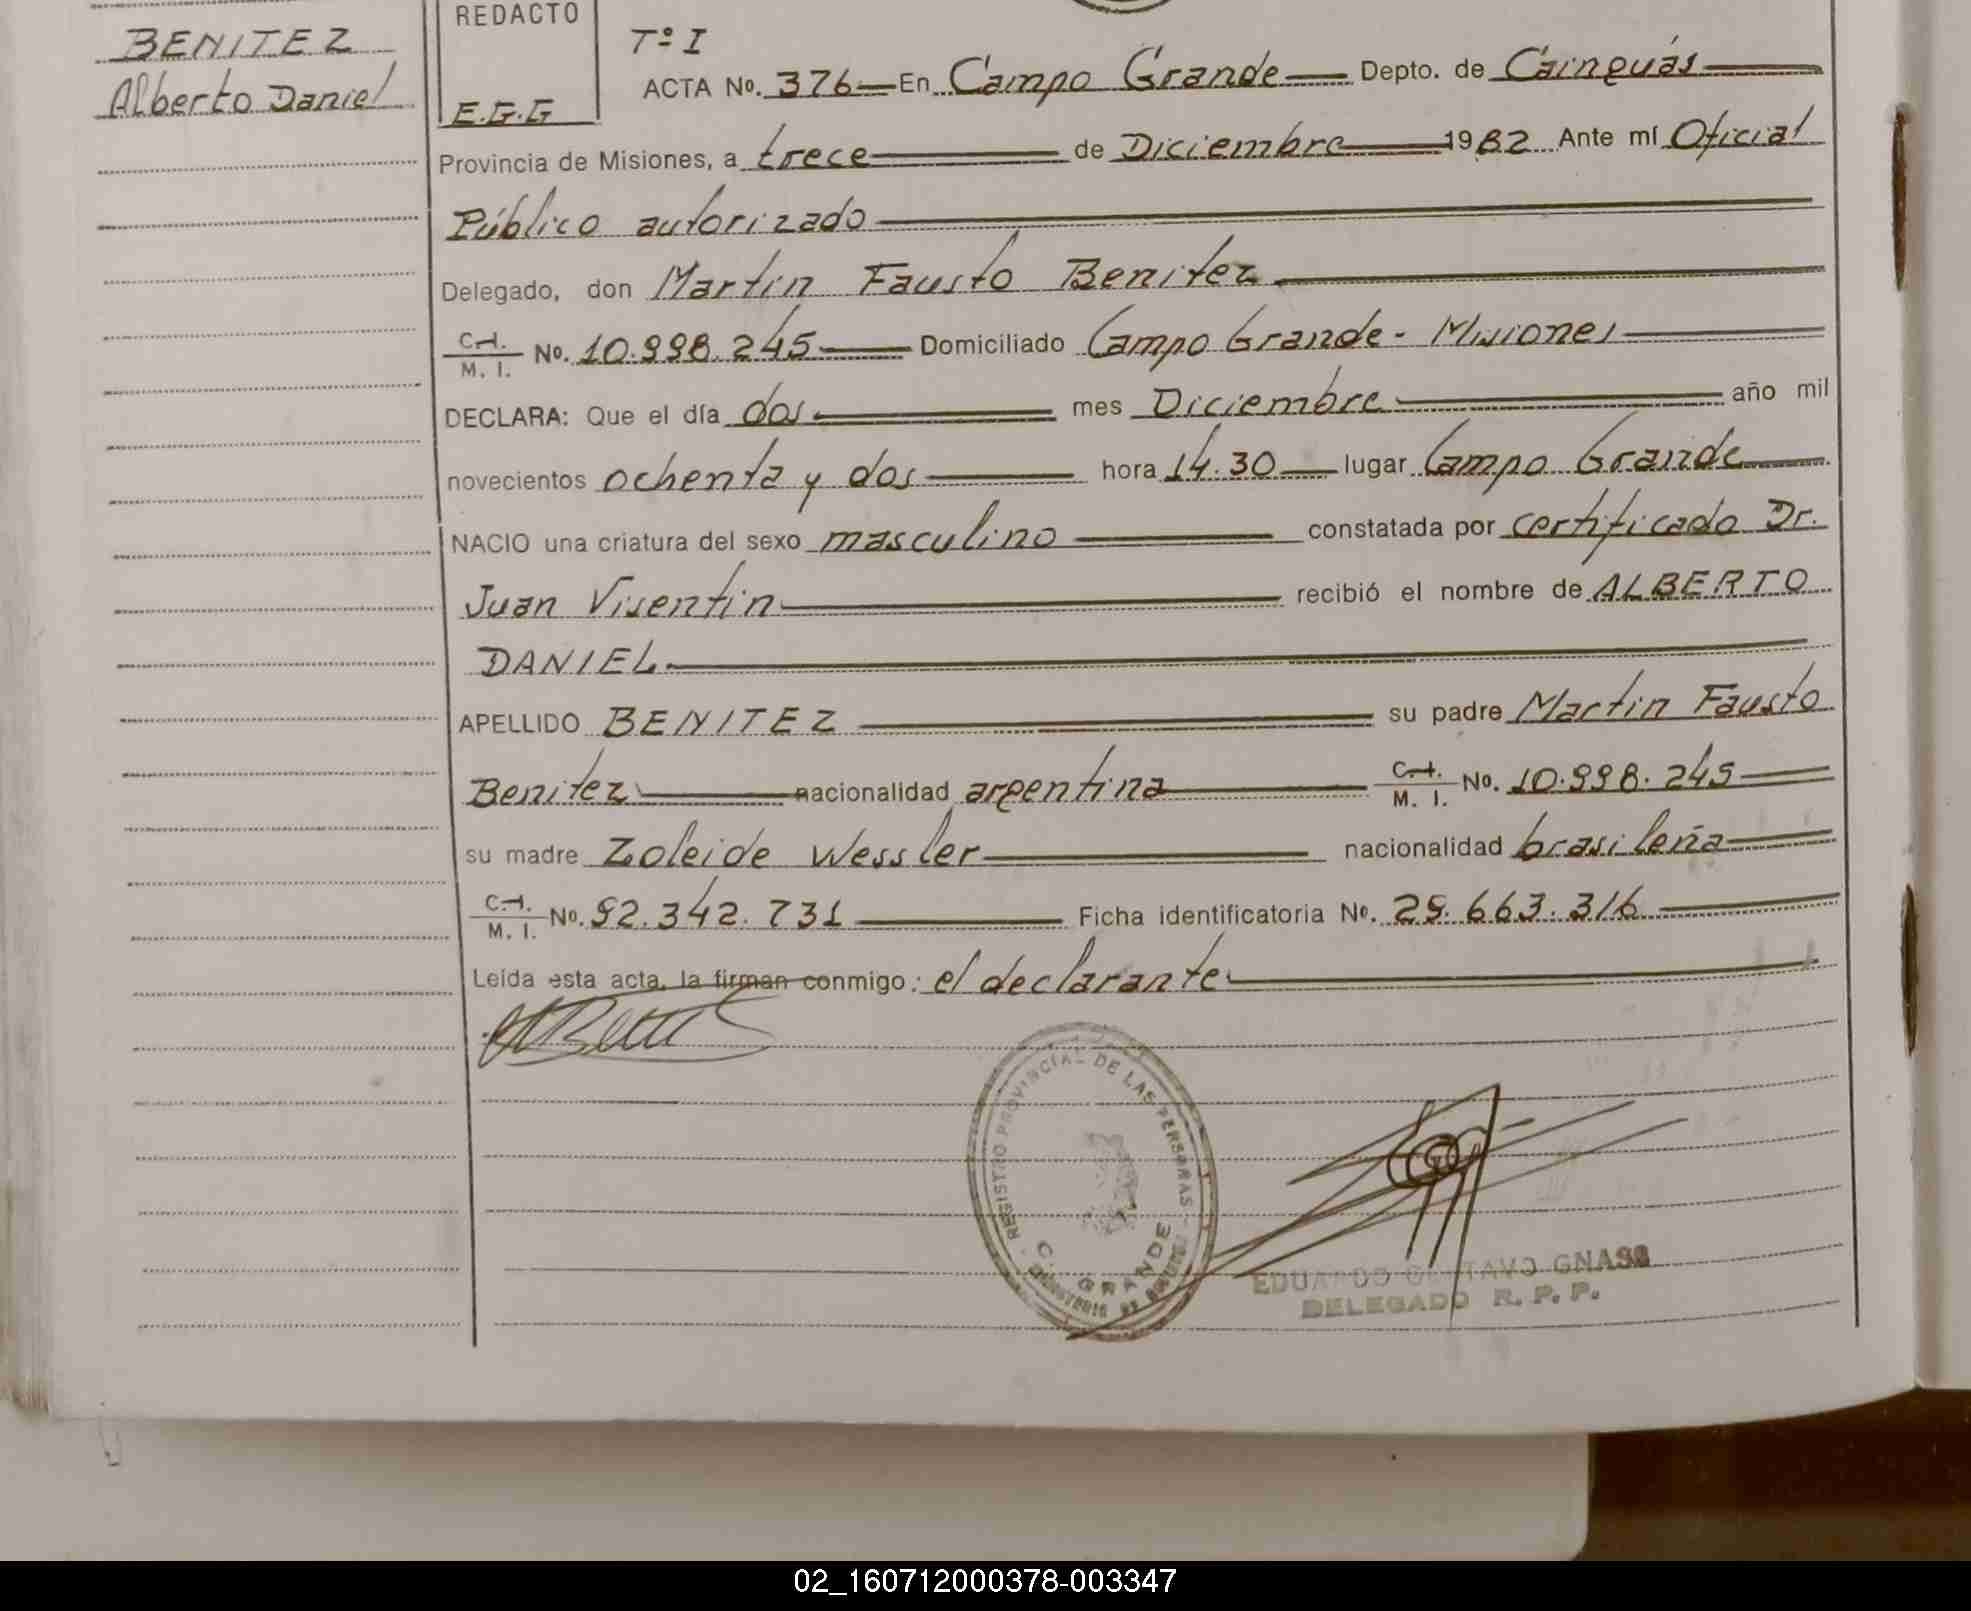 BENITEZ
Alberto Daniel
REDACTO
E.G.G
Tº I
ACTA No. 376 En Campo Grande Depto. de Cainguás
Provincia de Misiones, a trece de Diciembre 1982 Ante mí Oficial
Público autorizado
Delegado, don Martin Fausto Benitez
C. I. / M. I. No. 10.998.245 Domiciliado Campo Grande - Misiones
DECLARA: Que el día dos mes Diciembre año mil
novecientos ochenta y dos hora 14.30 lugar Campo Grande
NACIO una criatura del sexo masculino constatada por certificado Dr.
Juan Visentin recibió el nombre de ALBERTO
DANIEL
APELLIDO BENITEZ su padre Martin Fausto
Benitez nacionalidad argentina C. I. / M. I. No. 10.998.245
su madre Zoleide Wessler nacionalidad brasileña
C. I. / M. I. No. 92.342.731 Ficha identificatoria No. 29.663.316
Leída esta acta, la firman conmigo: el declarante
REGISTRO PROVINCIAL DE LAS PERSONAS
C. GRANDE
EDUARDO GUSTAVO GNASS
DELEGADO R. P. P.
02_160712000378-003347